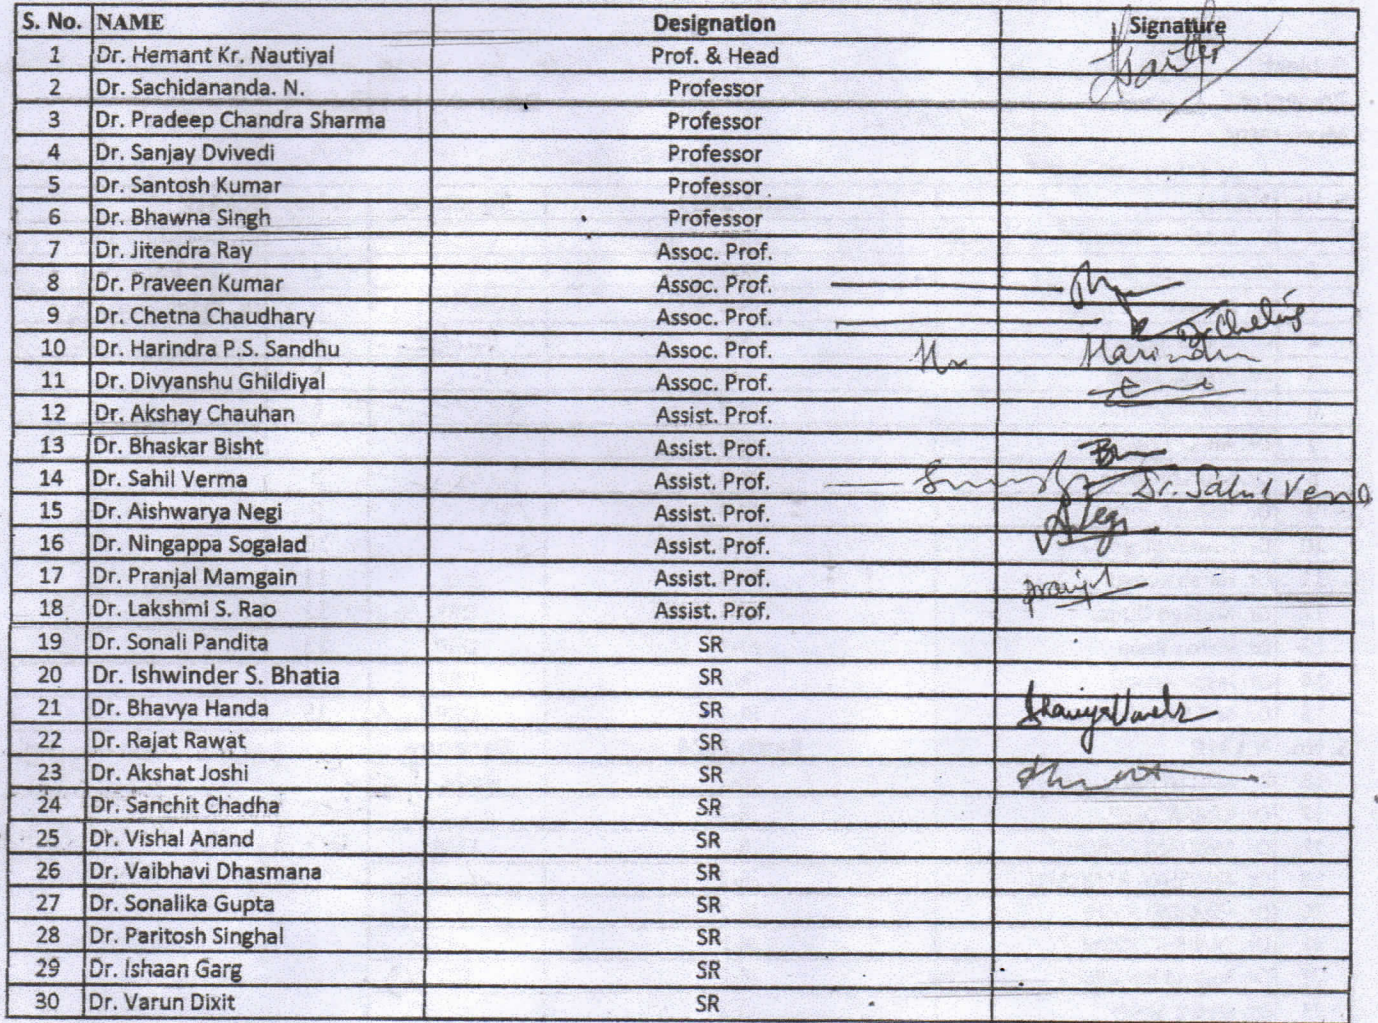 S. No. NAME Designation Signature
1 Dr. Hemant Kr. Nautiyal Prof. & Head
2 Dr. Sachidananda. N. Professor
3 Dr. Pradeep Chandra Sharma Professor
4 Dr. Sanjay Dvivedi Professor
5 Dr. Santosh Kumar Professor
6 Dr. Bhawna Singh Professor
7 Dr. Jitendra Ray Assoc. Prof.
8 Dr. Praveen Kumar Assoc. Prof.
9 Dr. Chetna Chaudhary Assoc. Prof.
10 Dr. Harindra P.S. Sandhu Assoc. Prof. Harindra
11 Dr. Divyanshu Ghildiyal Assoc. Prof.
12 Dr. Akshay Chauhan Assist. Prof.
13 Dr. Bhaskar Bisht Assist. Prof.
14 Dr. Sahil Verma Assist. Prof. Dr. Sahil Verma
15 Dr. Aishwarya Negi Assist. Prof.
16 Dr. Ningappa Sogalad Assist. Prof.
17 Dr. Pranjal Mamgain Assist. Prof.
18 Dr. Lakshmi S. Rao Assist. Prof.
19 Dr. Sonali Pandita SR
20 Dr. Ishwinder S. Bhatia SR
21 Dr. Bhavya Handa SR
22 Dr. Rajat Rawat SR
23 Dr. Akshat Joshi SR
24 Dr. Sanchit Chadha SR
25 Dr. Vishal Anand SR
26 Dr. Vaibhavi Dhasmana SR
27 Dr. Sonalika Gupta SR
28 Dr. Paritosh Singhal SR
29 Dr. Ishaan Garg SR
30 Dr. Varun Dixit SR